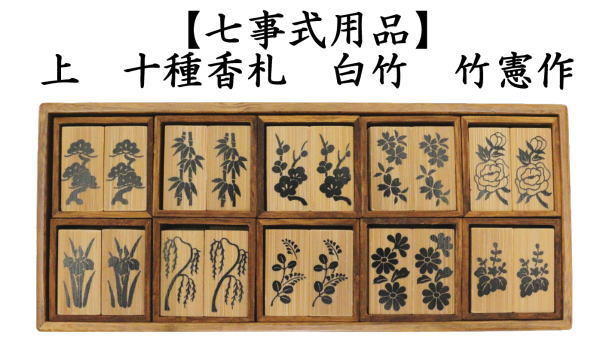 【七事式用品】
上　十種香札　白竹　竹憲作